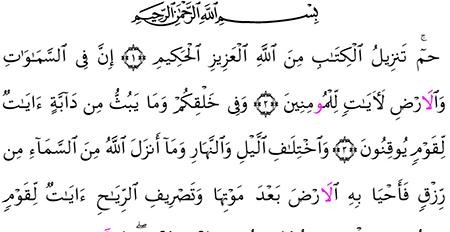 بِسْمِ ٱللَّهِ ٱلرَّحْمَٰنِ ٱلرَّحِيمِ
حمٓ تَنزِيلُ ٱلْكِتَٰبِ مِنَ ٱللَّهِ ٱلْعَزِيزِ ٱلْحَكِيمِ ﴿١﴾ إِنَّ فِى ٱلسَّمَٰوَٰتِ
وَٱلَارْضِ لَأَيَٰتٍ لِّلْمُومِنِينَ ﴿٢﴾ وَفِى خَلْقِكُمْ وَمَا يَبُثُّ مِن دَآبَّةٍ ءَايَٰتٌ
لِّقَوْمٍ يُوقِنُونَ ﴿٣﴾ وَٱخْتِلَٰفِ ٱلَّيْلِ وَٱلنَّهَارِ وَمَآ أَنزَلَ ٱللَّهُ مِنَ ٱلسَّمَآءِ مِن
رِّزْقٍ فَأَحْيَا بِهِ ٱلَارْضَ بَعْدَ مَوْتِهَا وَتَصْرِيفِ ٱلرِّيَٰحِ ءَايَٰتٌ لِّقَوْمٍ